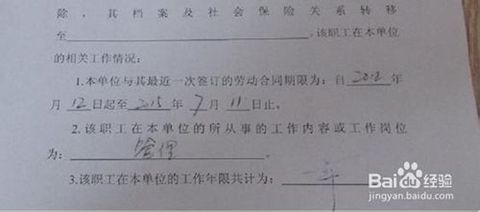 除，其档案及社会保险关系转移
至，该职工在本单位
的相关工作情况：
1.本单位与其最近一次签订的劳动合同期限为：自 年
月 12 日起至 2015 年 7 月 11 日止。
2.该职工在本单位的所从事的工作内容或工作岗位
为：管理。
3.该职工在本单位的工作年限共计为：一年
Baidu经验
jingyan.baidu.com